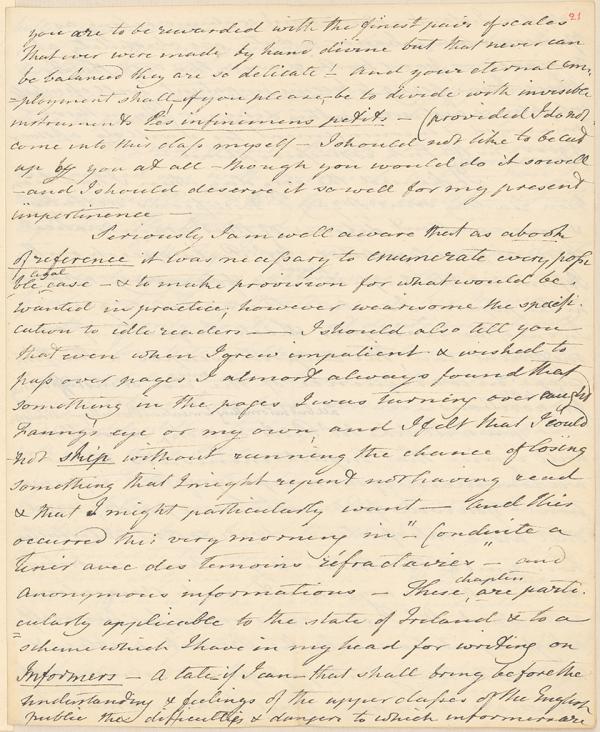 21
you are to be rewarded with the finest pair of scales
that ever were made by hand divine but that never can
be balanced they are so delicate – And your eternal em-
=ployment shall, if you please, be to divide with invisible
instruments les infinimens petits – (provided I do not
come into this class myself – I should not like to be cut
up by you at all – though you would do it so well
– and I should deserve it so well for my present
impertinence –
Seriously I am well aware that as a book
of reference it was necessary to enumerate every possi
legal
ble case – & to make provision for what would be
wanted in practice, however wearisome the specifi-
cation to idle readers –– I should also tell you
that even when I grew impatient & wished to
pass over pages I almost always found that
something in the pages I was turning over caught
Fanny's eye or my own, and I felt that I could
not skip without running the chance of losing
something that I might repent not having read
& that I might particularly want – And this
occurred this very morning in "– Conduite a
tenir avec des temoins réfractaires" – and
anonymous informations – These are parti-
chapters
cularly applicable to the state of Ireland & to a
=scheme which I have in my head for writing on
Informers – A tale if I can – that shall bring before the
understanding & feelings of the upper classes of the English
public the difficulties & dangers to which informers are